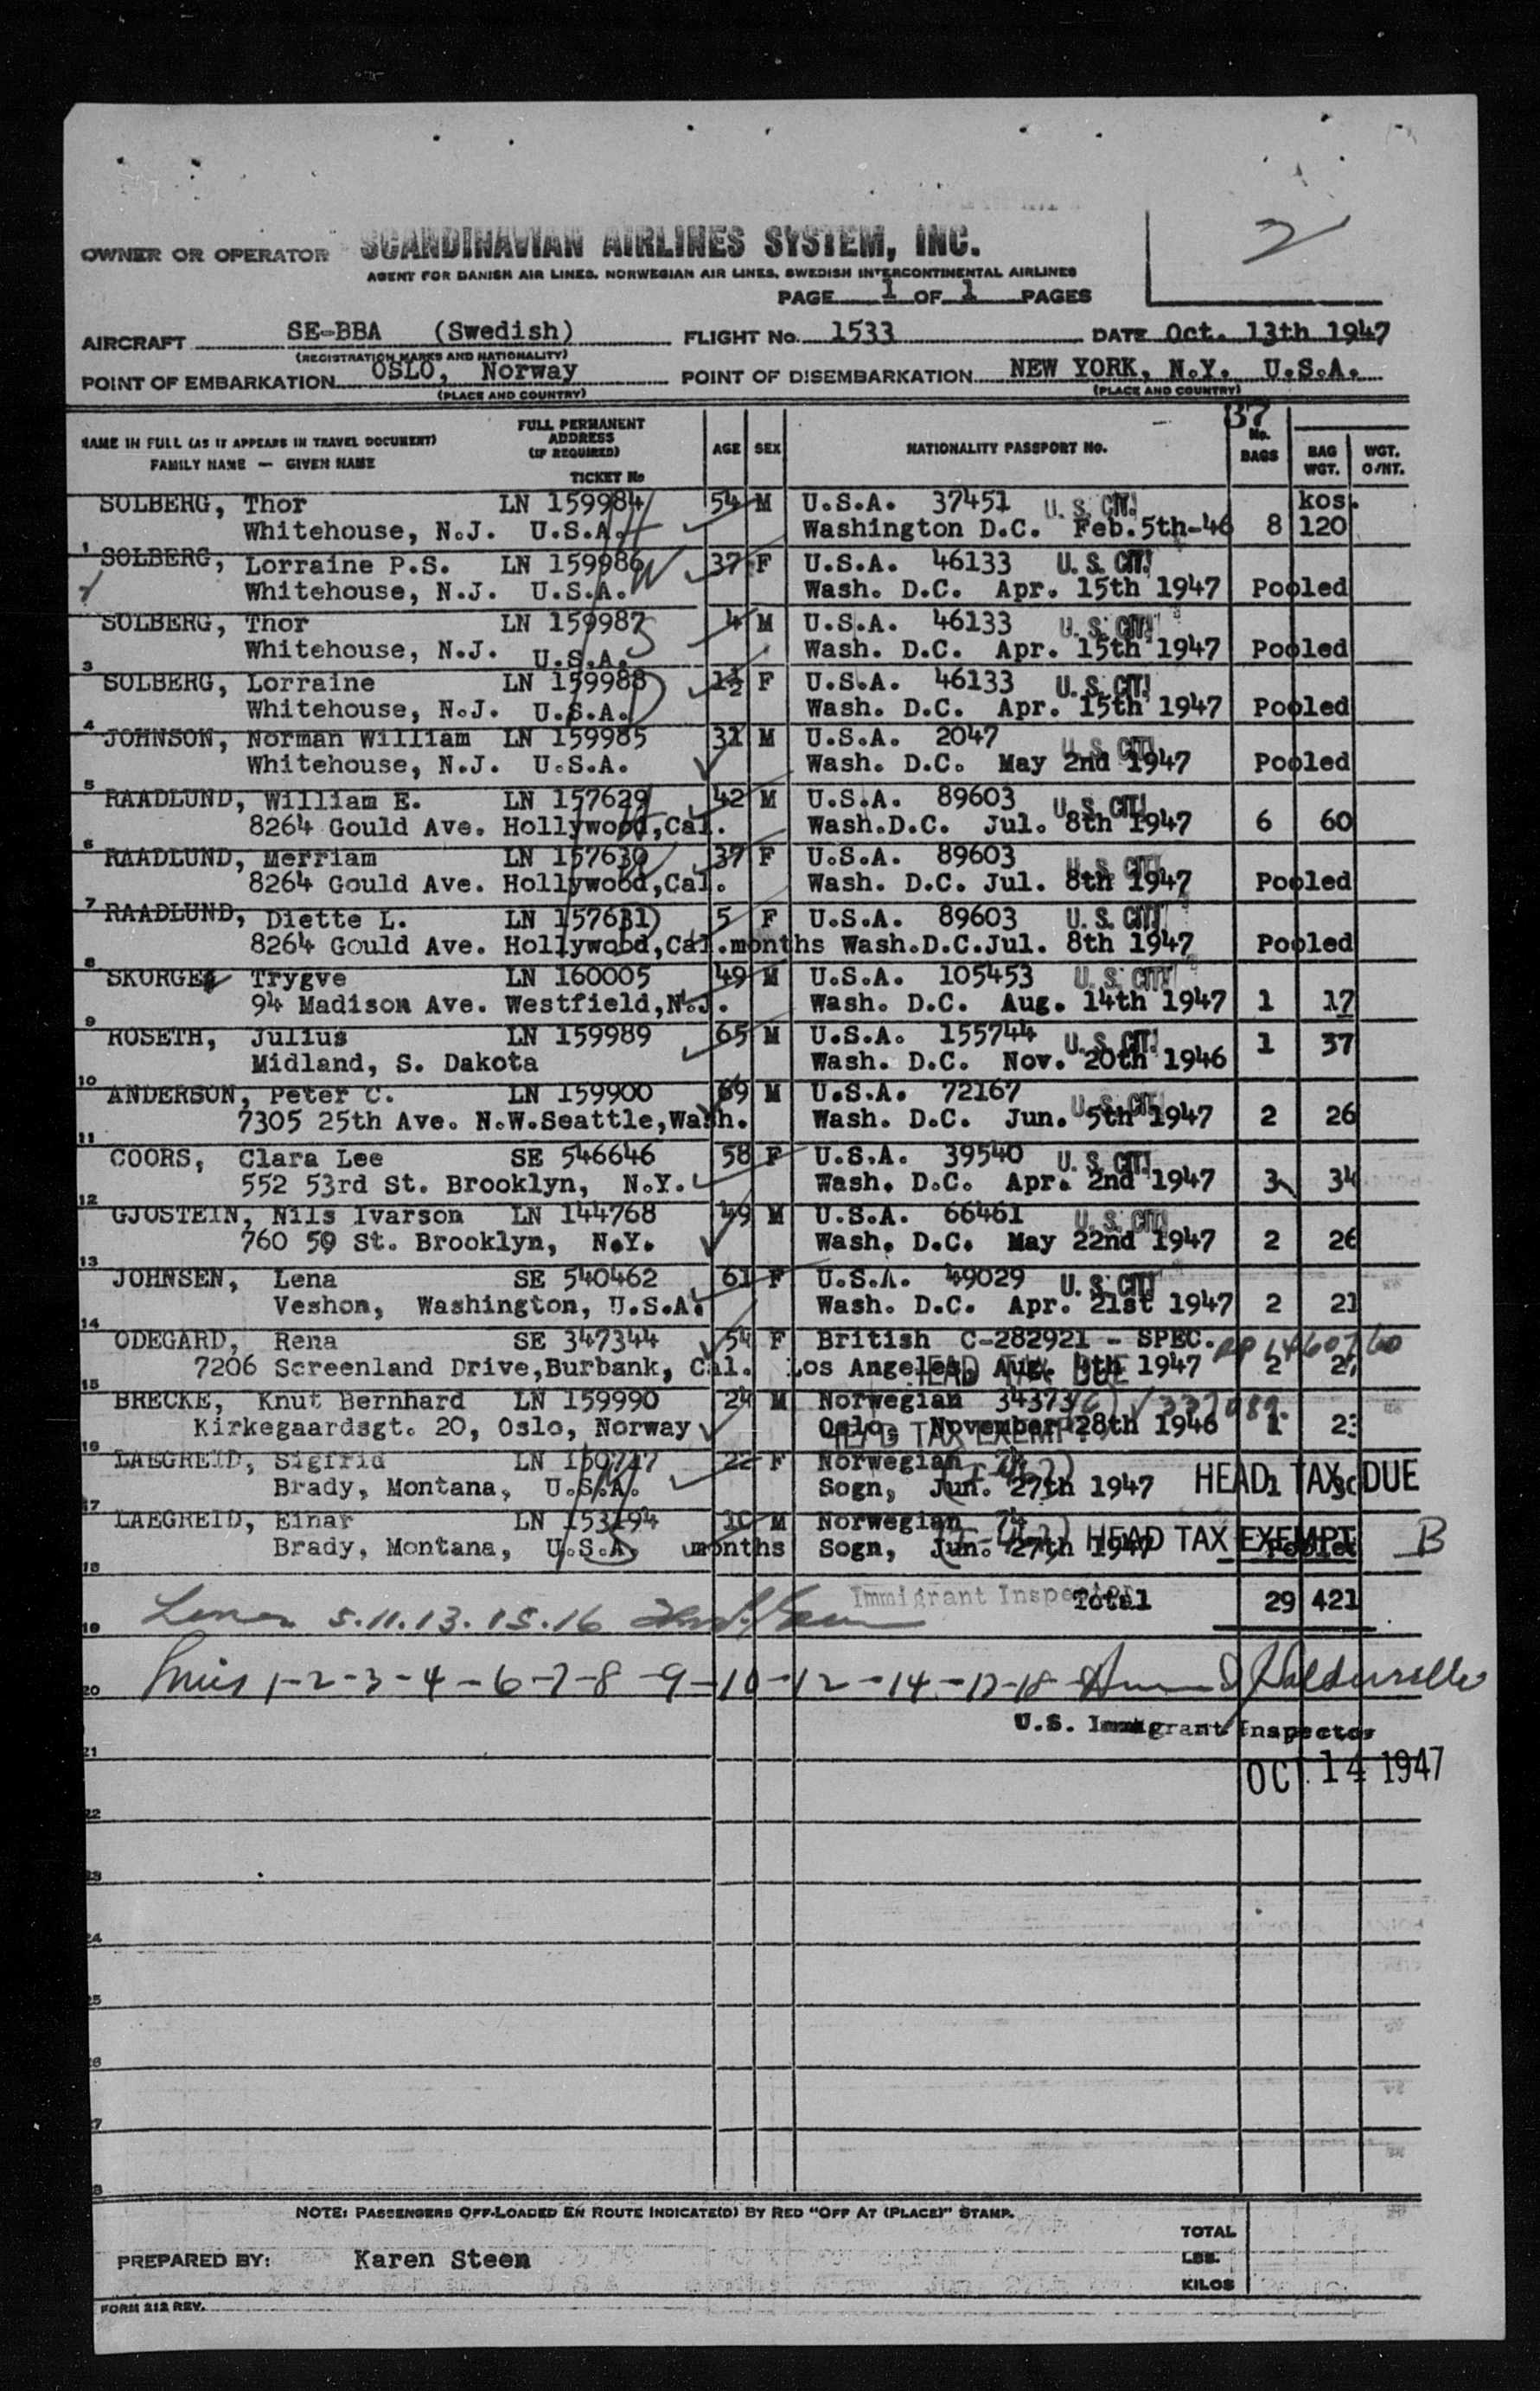 2
OWNER OR OPERATOR SCANDINAVIAN AIRLINES SYSTEM, INC.
AGENT FOR DANISH AIR LINES, NORWEGIAN AIR LINES, SWEDISH INTERCONTINENTAL AIRLINES
PAGE 1 OF 1 PAGES
AIRCRAFT SE-BBA (Swedish) FLIGHT No. 1533 DATE Oct. 13th 1947
(REGISTRATION MARKS AND NATIONALITY)
POINT OF EMBARKATION OSLO, Norway POINT OF DISEMBARKATION NEW YORK, N.Y. U.S.A.
(PLACE AND COUNTRY) (PLACE AND COUNTRY)
37
NAME IN FULL (AS IT APPEARS IN TRAVEL DOCUMENT) FULL PERMANENT ADDRESS (IF REQUIRED) AGE SEX NATIONALITY PASSPORT No. No. BAGS BAG WGT. WGT. O/NT.
FAMILY NAME — GIVEN NAME TICKET No
SOLBERG, Thor LN 159984 54 M U.S.A. 37451 U. S. CIT. kos.
Whitehouse, N.J. U.S.A. Washington D.C. Feb.5th-46 8 120
1 SOLBERG, Lorraine P.S. LN 159986 37 F U.S.A. 46133 U. S. CIT.
Whitehouse, N.J. U.S.A. Wash. D.C. Apr. 15th 1947 Pooled
SOLBERG, Thor LN 159987 4 M U.S.A. 46133 U. S. CIT.
Whitehouse, N.J. U.S.A. Wash. D.C. Apr. 15th 1947 Pooled
3
SOLBERG, Lorraine LN 159988 1½ F U.S.A. 46133 U. S. CIT.
Whitehouse, N.J. U.S.A. Wash. D.C. Apr. 15th 1947 Pooled
4 JOHNSON, Norman William LN 159985 31 M U.S.A. 2047 U. S. CIT.
Whitehouse, N.J. U.S.A. Wash. D.C. May 2nd 1947 Pooled
5 RAADLUND, William E. LN 157629 42 M U.S.A. 89603 U. S. CIT.
8264 Gould Ave. Hollywood,Cal. Wash.D.C. Jul. 8th 1947 6 60
6 RAADLUND, Merriam LN 157630 37 F U.S.A. 89603 U. S. CIT.
8264 Gould Ave. Hollywood,Cal. Wash. D.C. Jul. 8th 1947 Pooled
7 RAADLUND, Diette L. LN 157631 5 F U.S.A. 89603 U. S. CIT.
8264 Gould Ave. Hollywood,Cal.months Wash.D.C.Jul. 8th 1947 Pooled
8 SKORGE, Trygve LN 160005 49 M U.S.A. 105453 U. S. CIT.
94 Madison Ave. Westfield,N.J. Wash. D.C. Aug. 14th 1947 1 17
9 ROSETH, Julius LN 159989 65 M U.S.A. 155744 U. S. CIT.
Midland, S. Dakota Wash. D.C. Nov. 20th 1946 1 37
10 ANDERSON, Peter C. LN 159900 69 M U.S.A. 72167 U. S. CIT.
7305 25th Ave. N.W.Seattle,Wash. Wash. D.C. Jun. 5th 1947 2 26
11 COORS, Clara Lee SE 546646 58 F U.S.A. 39540 U. S. CIT.
552 53rd St. Brooklyn, N.Y. Wash. D.C. Apr. 2nd 1947 3 34
12 GJOSTEIN, Nils Ivarson LN 144768 49 M U.S.A. 66461 U. S. CIT.
760 59 St. Brooklyn, N.Y. Wash. D.C. May 22nd 1947 2 26
13 JOHNSEN, Lena SE 540462 61 F U.S.A. 49029 U. S. CIT.
Veshon, Washington, U.S.A. Wash. D.C. Apr. 21st 1947 2 21
14 ODEGARD, Rena SE 347344 54 F British C-282921 - SPEC.
7206 Screenland Drive,Burbank, Cal. Los Angeles, Aug. 1947 HEAD TAX DUE 2
15 BRECKE, Knut Bernhard LN 159990 24 M Norwegian 34373
Kirkegaardsgt. 20, Oslo, Norway Oslo, November 28th 1946 HEAD TAX EXEMPT 1
16 LAEGREID, Sigfrid LN 22 F Norwegian 74
Brady, Montana, U.S.A. Sogn, Jun. 27th 1947 HEAD TAX DUE
17 LAEGREID, Einar LN 153194 10 M Norwegian 74
Brady, Montana, U.S.A. months Sogn, Jun. 27th 1947 HEAD TAX EXEMPT Pooled B
18
Immigrant Inspector Total 29 421
5.11.13.15.16
19
1-2-3-4-6-7-8-9-10-12-14-17-18
20
U.S. Immigrant Inspector
21
OCT 14 1947
22
23
24
25
26
27
28
NOTE: PASSENGERS OFF-LOADED EN ROUTE INDICATE(D) BY RED "OFF AT (PLACE)" STAMP.
TOTAL
PREPARED BY: Karen Steen LBS.
KILOS
FORM 212 REV.